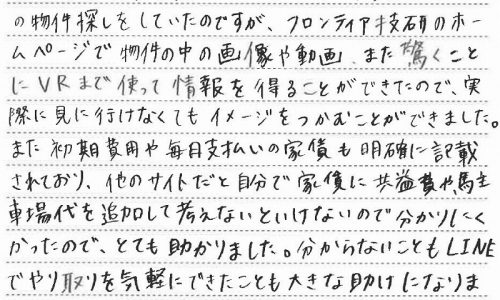 の物件探しをしていたのですが、フロンティア技研のホー
ムページで物件の中の画像や動画、また驚くこと
にVRまで使って情報を得ることができたので、実
際に見に行けなくてもイメージをつかむことができました。
また初期費用や毎月支払いの家賃も明確に記載
されており、他のサイトだと自分で家賃に共益費や駐
車場代を追加して考えないといけないので分かりにく
かったので、とても助かりました。分からないこともLINE
でやり取りを気軽にできたことも大きな助けになりま